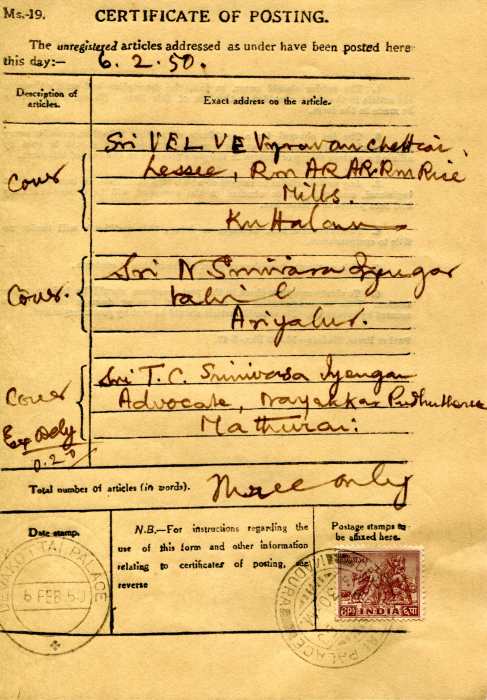 Ms.-19. CERTIFICATE OF POSTING.
The unregistered articles addressed as under have been posted here
this day:— 6.2.50.
Description of articles. Exact address on the article.
Sri VEL VE Vyravan Chettiar,
Cover Lessee, Rm AR AR Rm Rice
Mills.
Sri N Srinivasa Iyengar
Cover. Vakil
Ariyalur.
Sri T. C. Srinivasa Iyengar
Cover Advocate, Nayakkar
Exp Dely Mathurai:
0.2.0
Total number of articles (in words). Three only
Date stamp.
N.B.—For instructions regarding the
use of this form and other information
relating to certificates of posting, see
reverse
Postage stamps to
be affixed here.
PALACE
6 FEB 50
INDIA